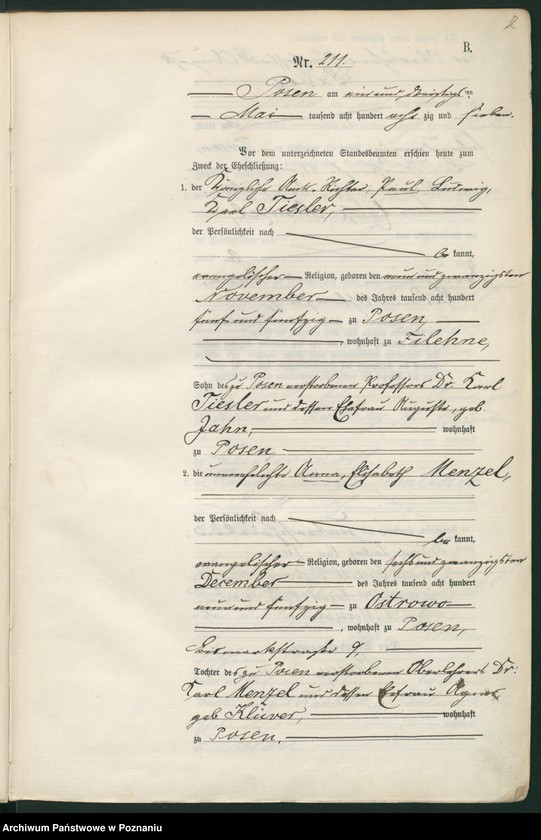 2
B.
Nr. 211.
Posen am ein und dreißigsten
Mai tausend acht hundert achtzig und sieben.
Vor dem unterzeichneten Standesbeamten erschien heute zum
Zweck der Eheschließung:
1. der Königliche Amts-Richter Paul, Ludwig,
Karl Tiesler,
der Persönlichkeit nach
bekannt,
evangelischer Religion, geboren den neun und zwanzigsten
November des Jahres tausend acht hundert
fünf und fünfzig zu Posen,
, wohnhaft zu Filehne,
Sohn des zu Posen verstorbenen Professors Dr. Karl
Tiesler und dessen Ehefrau Auguste, geb.
Jahn, wohnhaft
zu Posen
2. die unverehelichte Anna, Elisabeth Menzel,
der Persönlichkeit nach
bekannt,
evangelischer Religion, geboren den sechs und zwanzigsten
December des Jahres tausend acht hundert
neun und fünfzig zu Ostrowo
, wohnhaft zu Posen,
Bismarkstraße 9,
Tochter des zu Posen verstorbenen Oberlehrers Dr.
Karl Menzel und dessen Ehefrau Agnes
geb Klüver, wohnhaft
zu Posen.
Archiwum Państwowe w Poznaniu